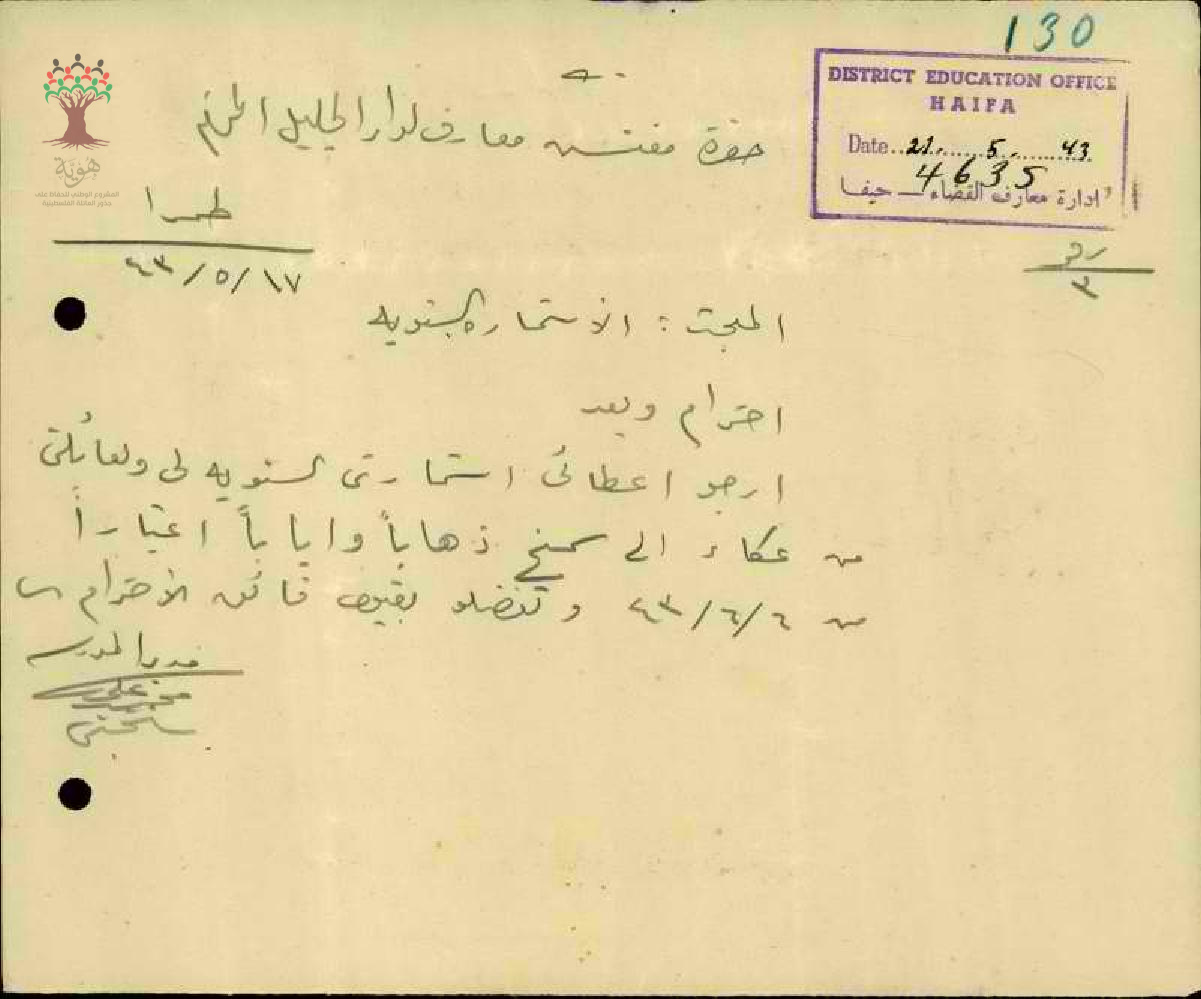 130
DISTRICT EDUCATION OFFICE
HAIFA
Date..21......5.......43
4635
ادارة معارف القضاء ـ حيفا
هوية
المشروع الوطني للحفاظ على
جذور العائلة الفلسطينية
حضرة مفتش معارف لواء الجليل المحترم
طمرا
٤٣/٥/١٧
رقم
٣
المبحث : الاستمارة السنويه
احترام وبعد
ارجو اعطائي استمارتي السنويه لي ولعائلتي
من عكاء الى سمخ ذهاباً واياباً اعتباراً
من ٤٣/٦/٦ وتفضلو بقبول فائق الاحترام
مدير المدرسه